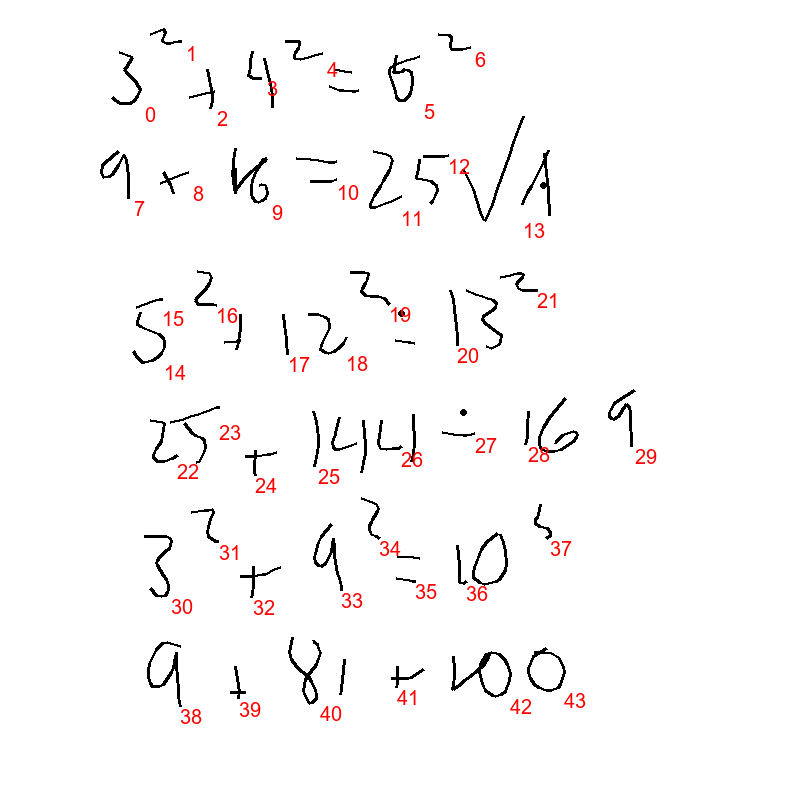 3² + 4² = 5²
0 1 2 3 4 5 6
9 + 16 = 25 √
7 8 9 10 11 12 13
5² + 12² = 13²
14 15 16 17 18 19 20 21
25 + 144 = 169
22 23 24 25 26 27 28 29
3² + 9² = 10²
30 31 32 33 34 35 36 37
9 + 81 + 100
38 39 40 41 42 43